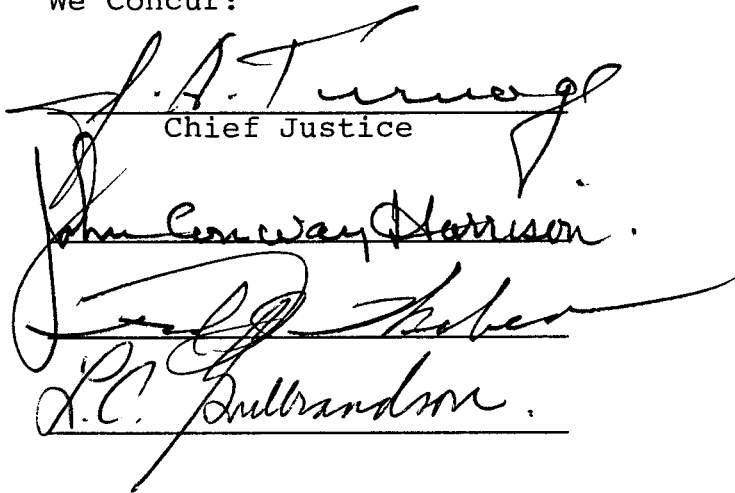 We Concur:
J. A. Turnage
Chief Justice
John Conway Harrison.
L.C. Gulbrandson.